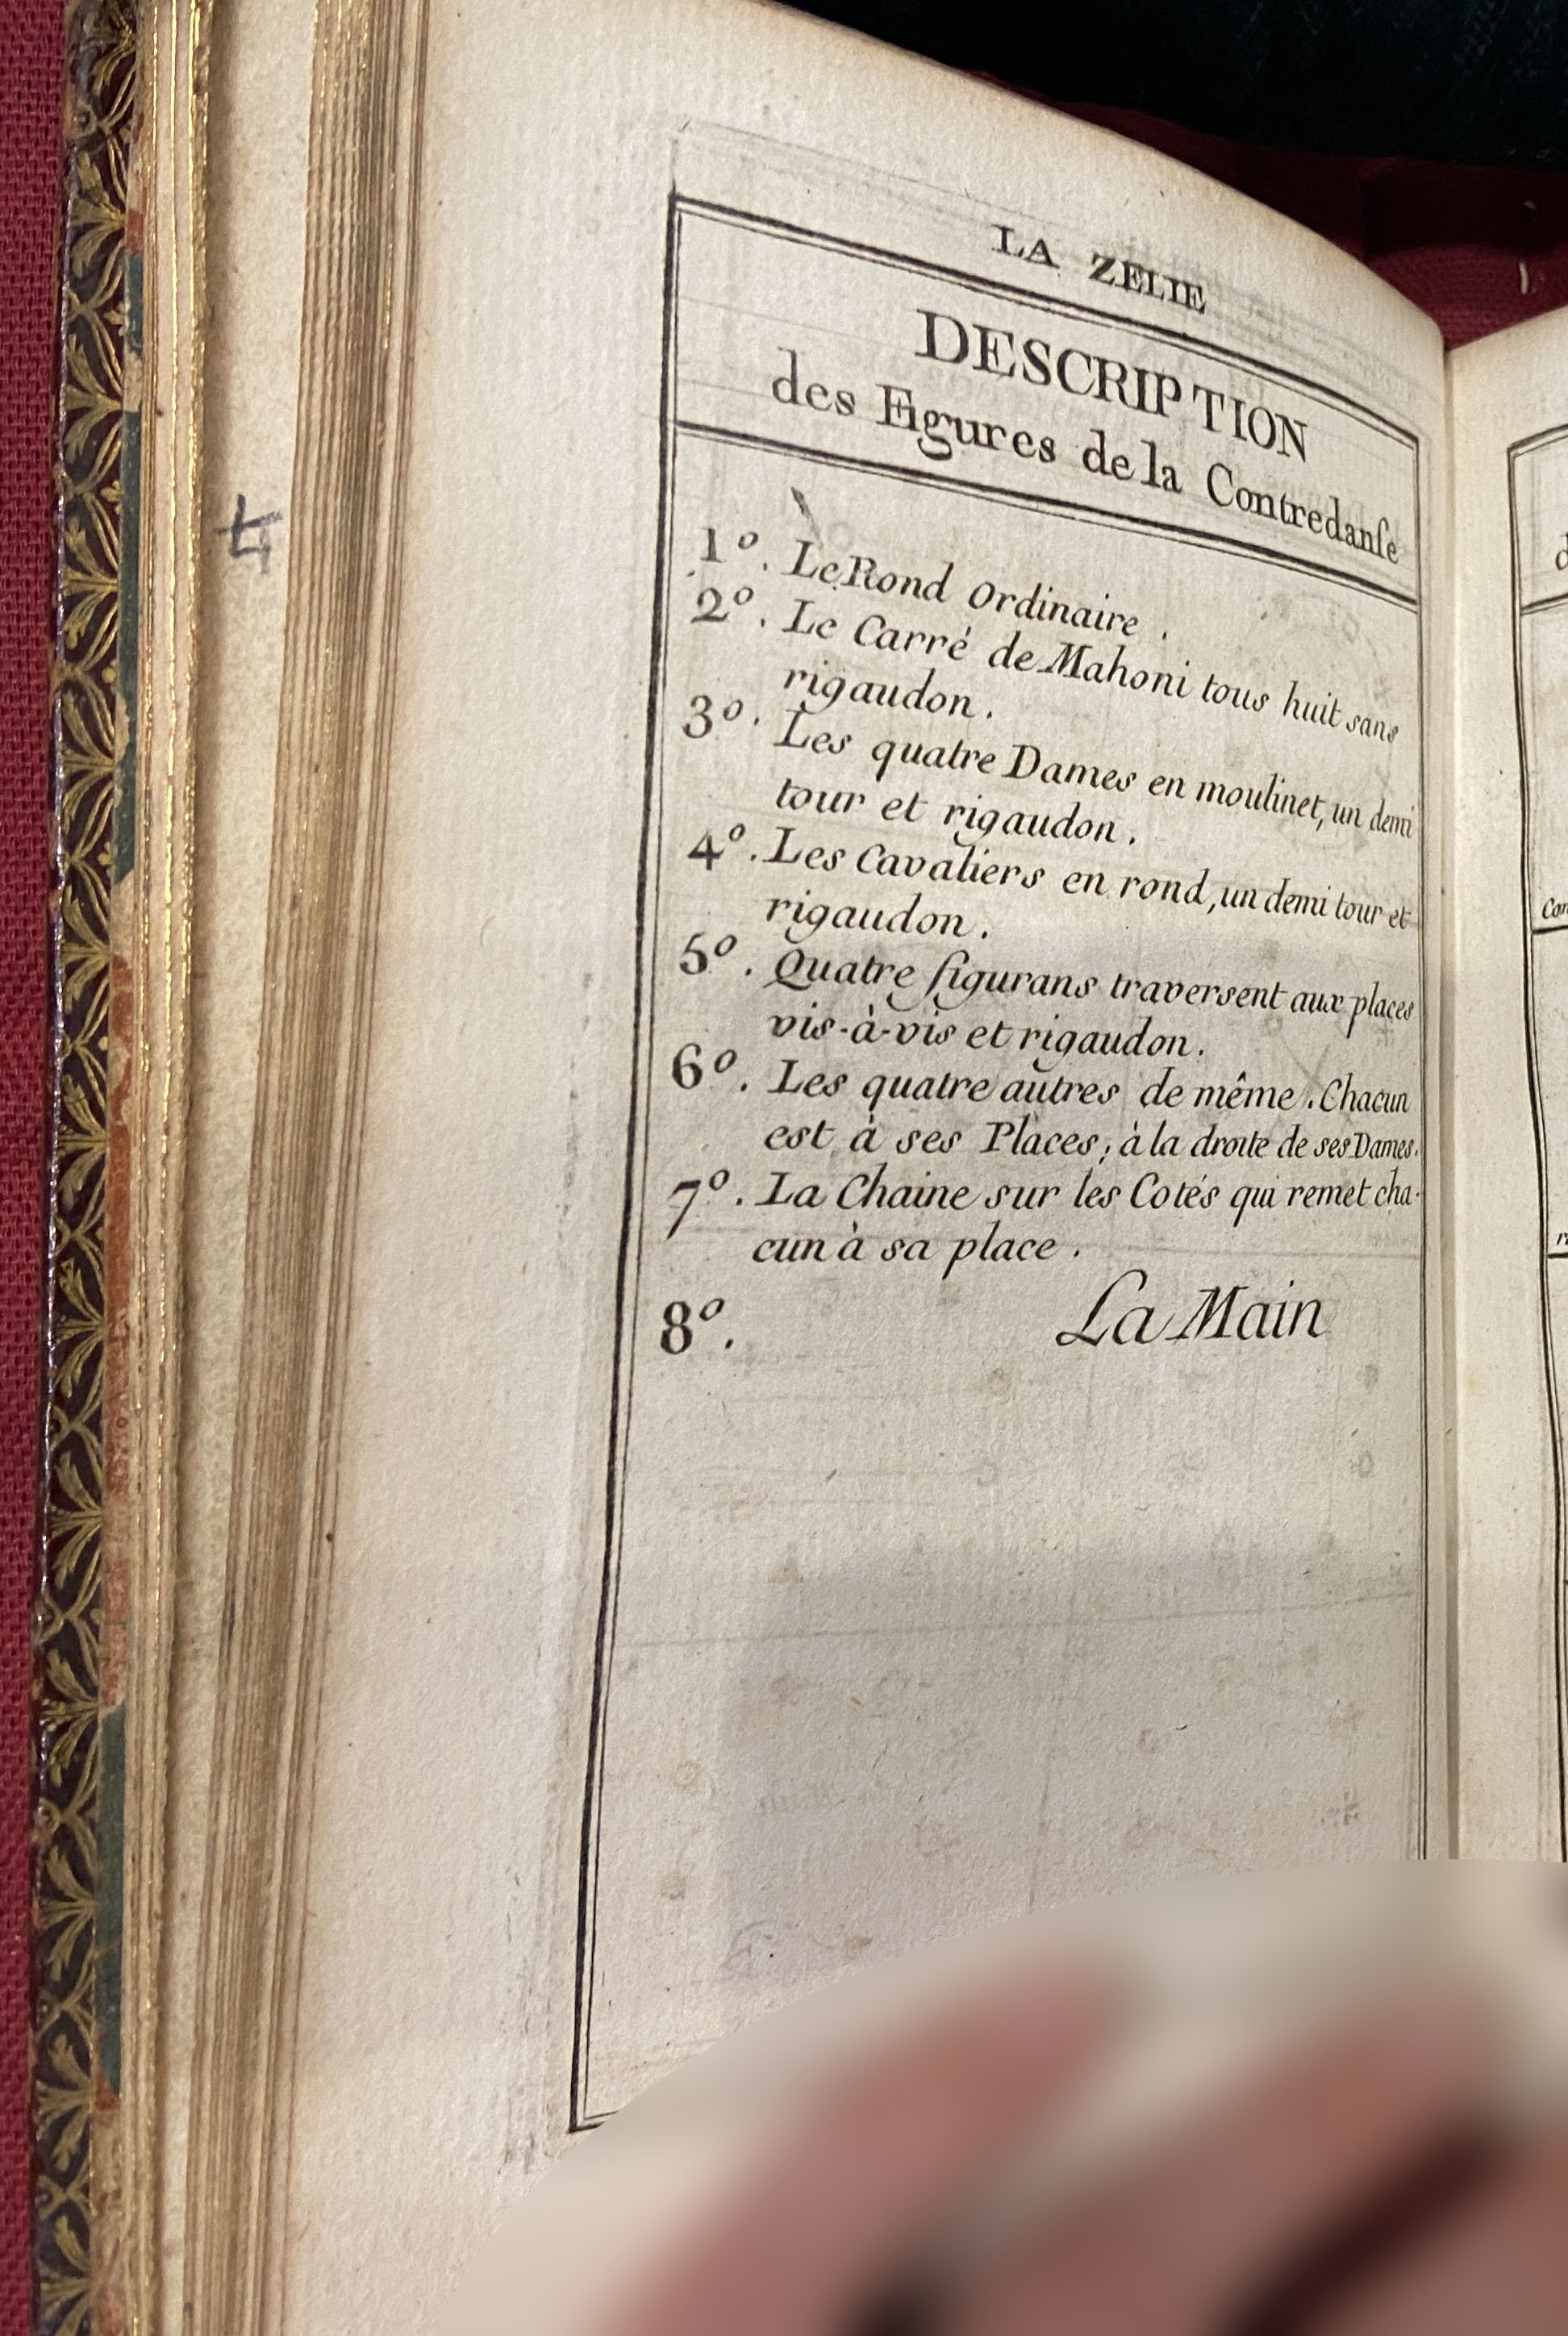 LA ZELIE
DESCRIPTION
des Figures de la Contredanſe
1º. Le Rond Ordinaire.
2º. Le Carré de Mahoni tous huit sans
rigaudon.
3º. Les quatre Dames en moulinet, un demi
tour et rigaudon.
4º. Les Cavaliers en rond, un demi tour et
rigaudon.
5º. Quatre figurans traversent aux places
vis-à-vis et rigaudon.
6º. Les quatre autres de même. Chacun
est à ses Places, à la droite de ses Dames.
7º. La Chaine sur les Cotés qui remet cha-
cun à sa place.
8º. La Main